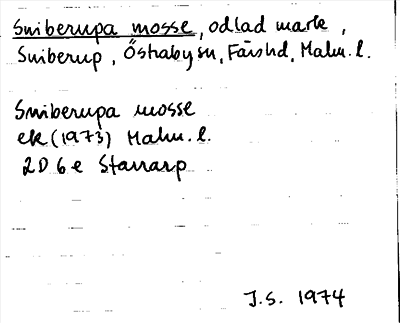 Sniberupa mosse, odlad mark,
Sniberup, Östraby sn, Färs hd, Malm. l.
Sniberupa mosse
ek (1973) Malm. l.
2D 6e Starrarp
J.S. 1974